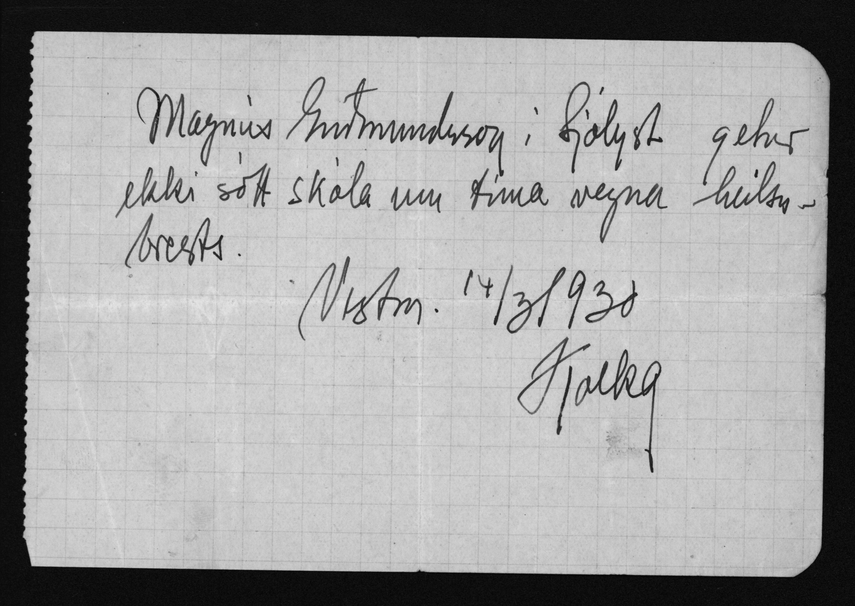 Magnús Guðmundsson í Sjólyst getur
ekki sótt skóla um tíma vegna heilsu-
brests.
Vestm. 14/3 1930